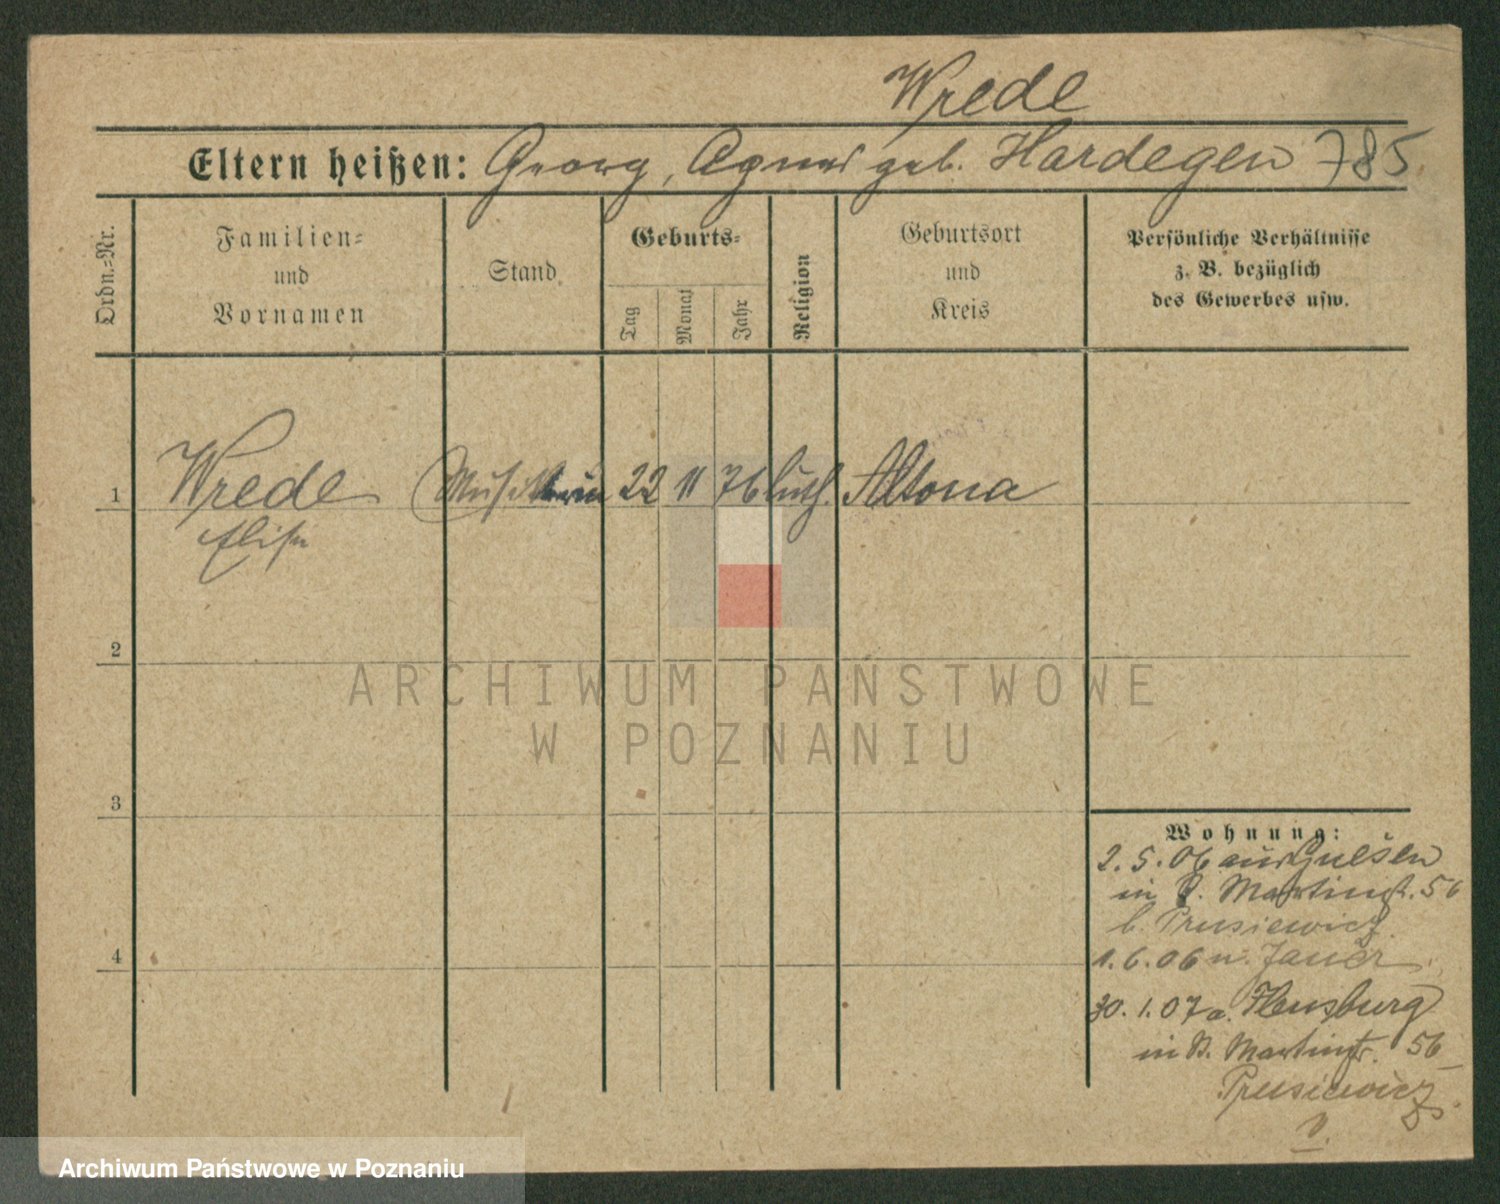 Wrede
Eltern heißen: Georg, Agnes geb. Hardegen 785
Ordn.-Nr.
Familien-
und
Vornamen
Stand
Geburts-
Tag
Monat
Jahr
Religion
Geburtsort
und
Kreis
Persönliche Verhältnisse
z. B. bezüglich
des Gewerbes usw.
1 Wrede Musikerin 22 11 76 luth. Altona
Elise
2
3
4
Wohnung:
2.5.06 aus Gnesen
in St. Martinstr. 56
b. Prusiewicz
1.6.06 n. Jauer
30.1.07 a. Flensburg
in St. Martinstr. 56
Prusiewicz
ARCHIWUM PAŃSTWOWE
W POZNANIU
Archiwum Państwowe w Poznaniu